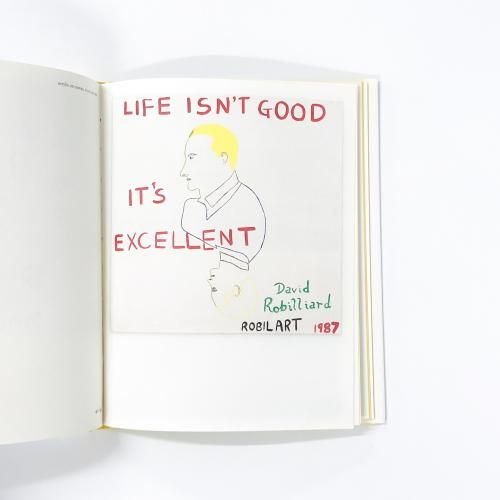 LIFE ISN'T GOOD
IT'S
EXCELLENT
David
Robilliard
ROBILART 1987